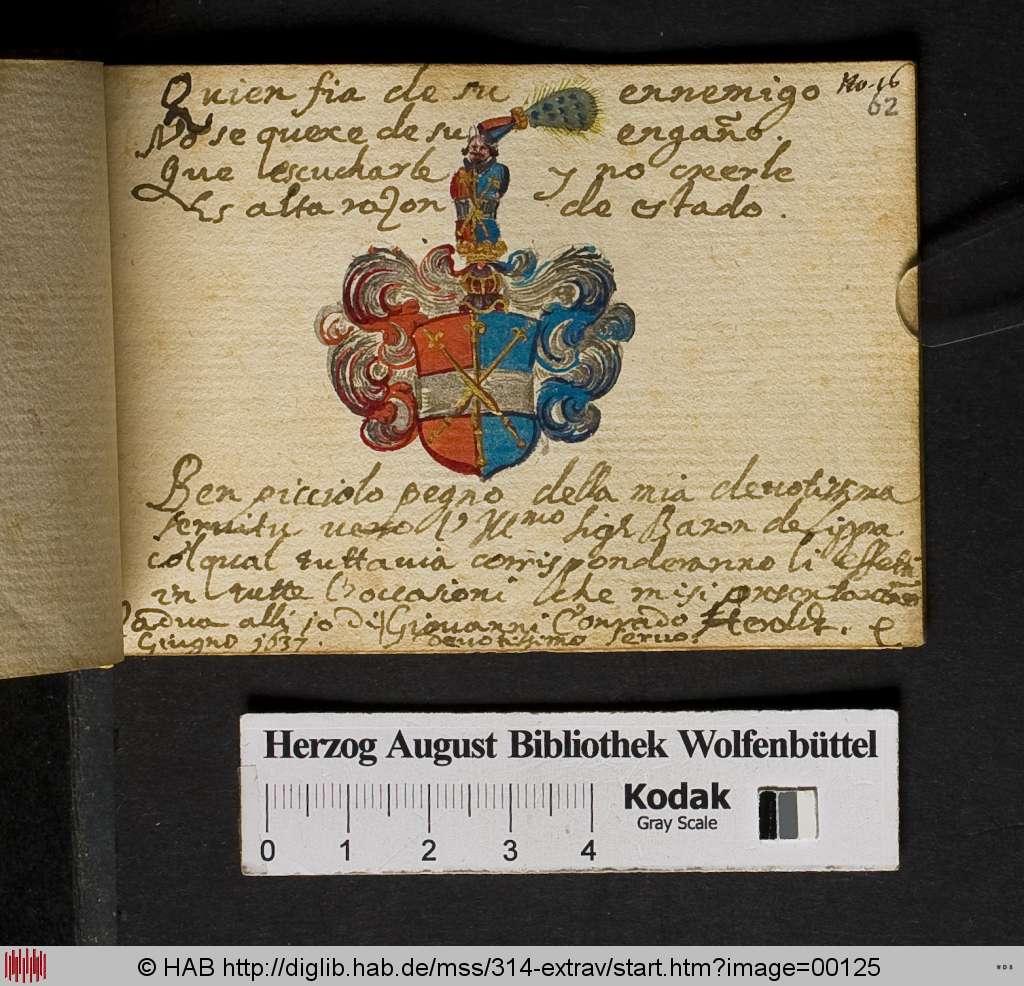 Quien fia de su ennemigo No. 16
62
No se quexe de su engaño.
Que lescucharle y no creerle
Es alta razon de estado.
Ben picciolo pegno della mia deuotissma
seruitu uerso l' Illmo sigr Baron de Lippa
col qual tuttauia corrisponderanno li effetti
in tutte l'occasioni che misi presentaranno
Padua alli 10 di Giovanni Conrado Heroldt.
Giugno 1637. deuotissimo seruo.
Herzog August Bibliothek Wolfenbüttel
Kodak
Gray Scale
0 1 2 3 4
© HAB http://diglib.hab.de/mss/314-extrav/start.htm?image=00125